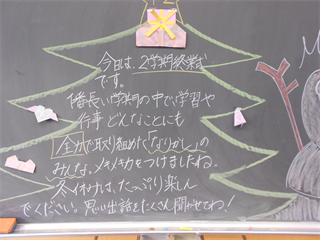 今日は、2学期終業式
です。
1番長い学期の中で学習や
行事 どんなことにも
全力で取り組めた「なりかし」の
みんな。メキメキカをつけましたね。
冬休みは、たっぷり楽しん
でください。思い出話をたくさん聞かせてね！